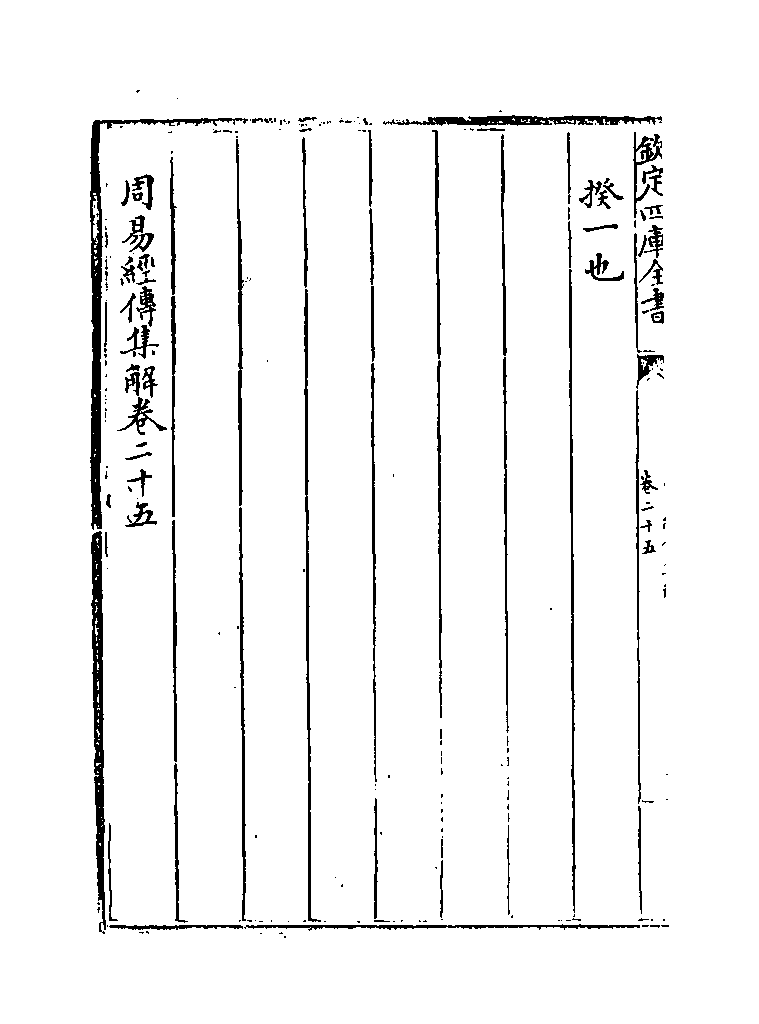 欽定四庫全書
卷二十五
揆一也
周易經傳集解卷二十五